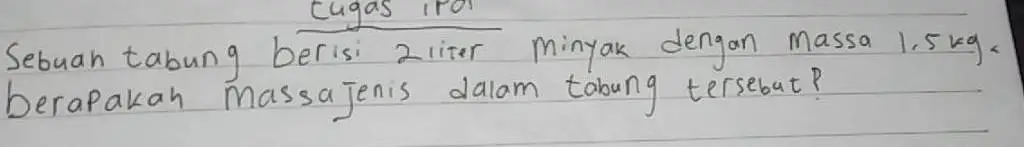 tugas
Sebuah tabung berisi 2 liter minyak dengan massa 1,5 kg.
berapakah massa jenis dalam tabung tersebut?